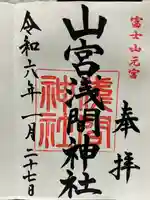 富士山元宮
奉拝
山宮浅間神社
浅間神社
令和六年一月二十七日